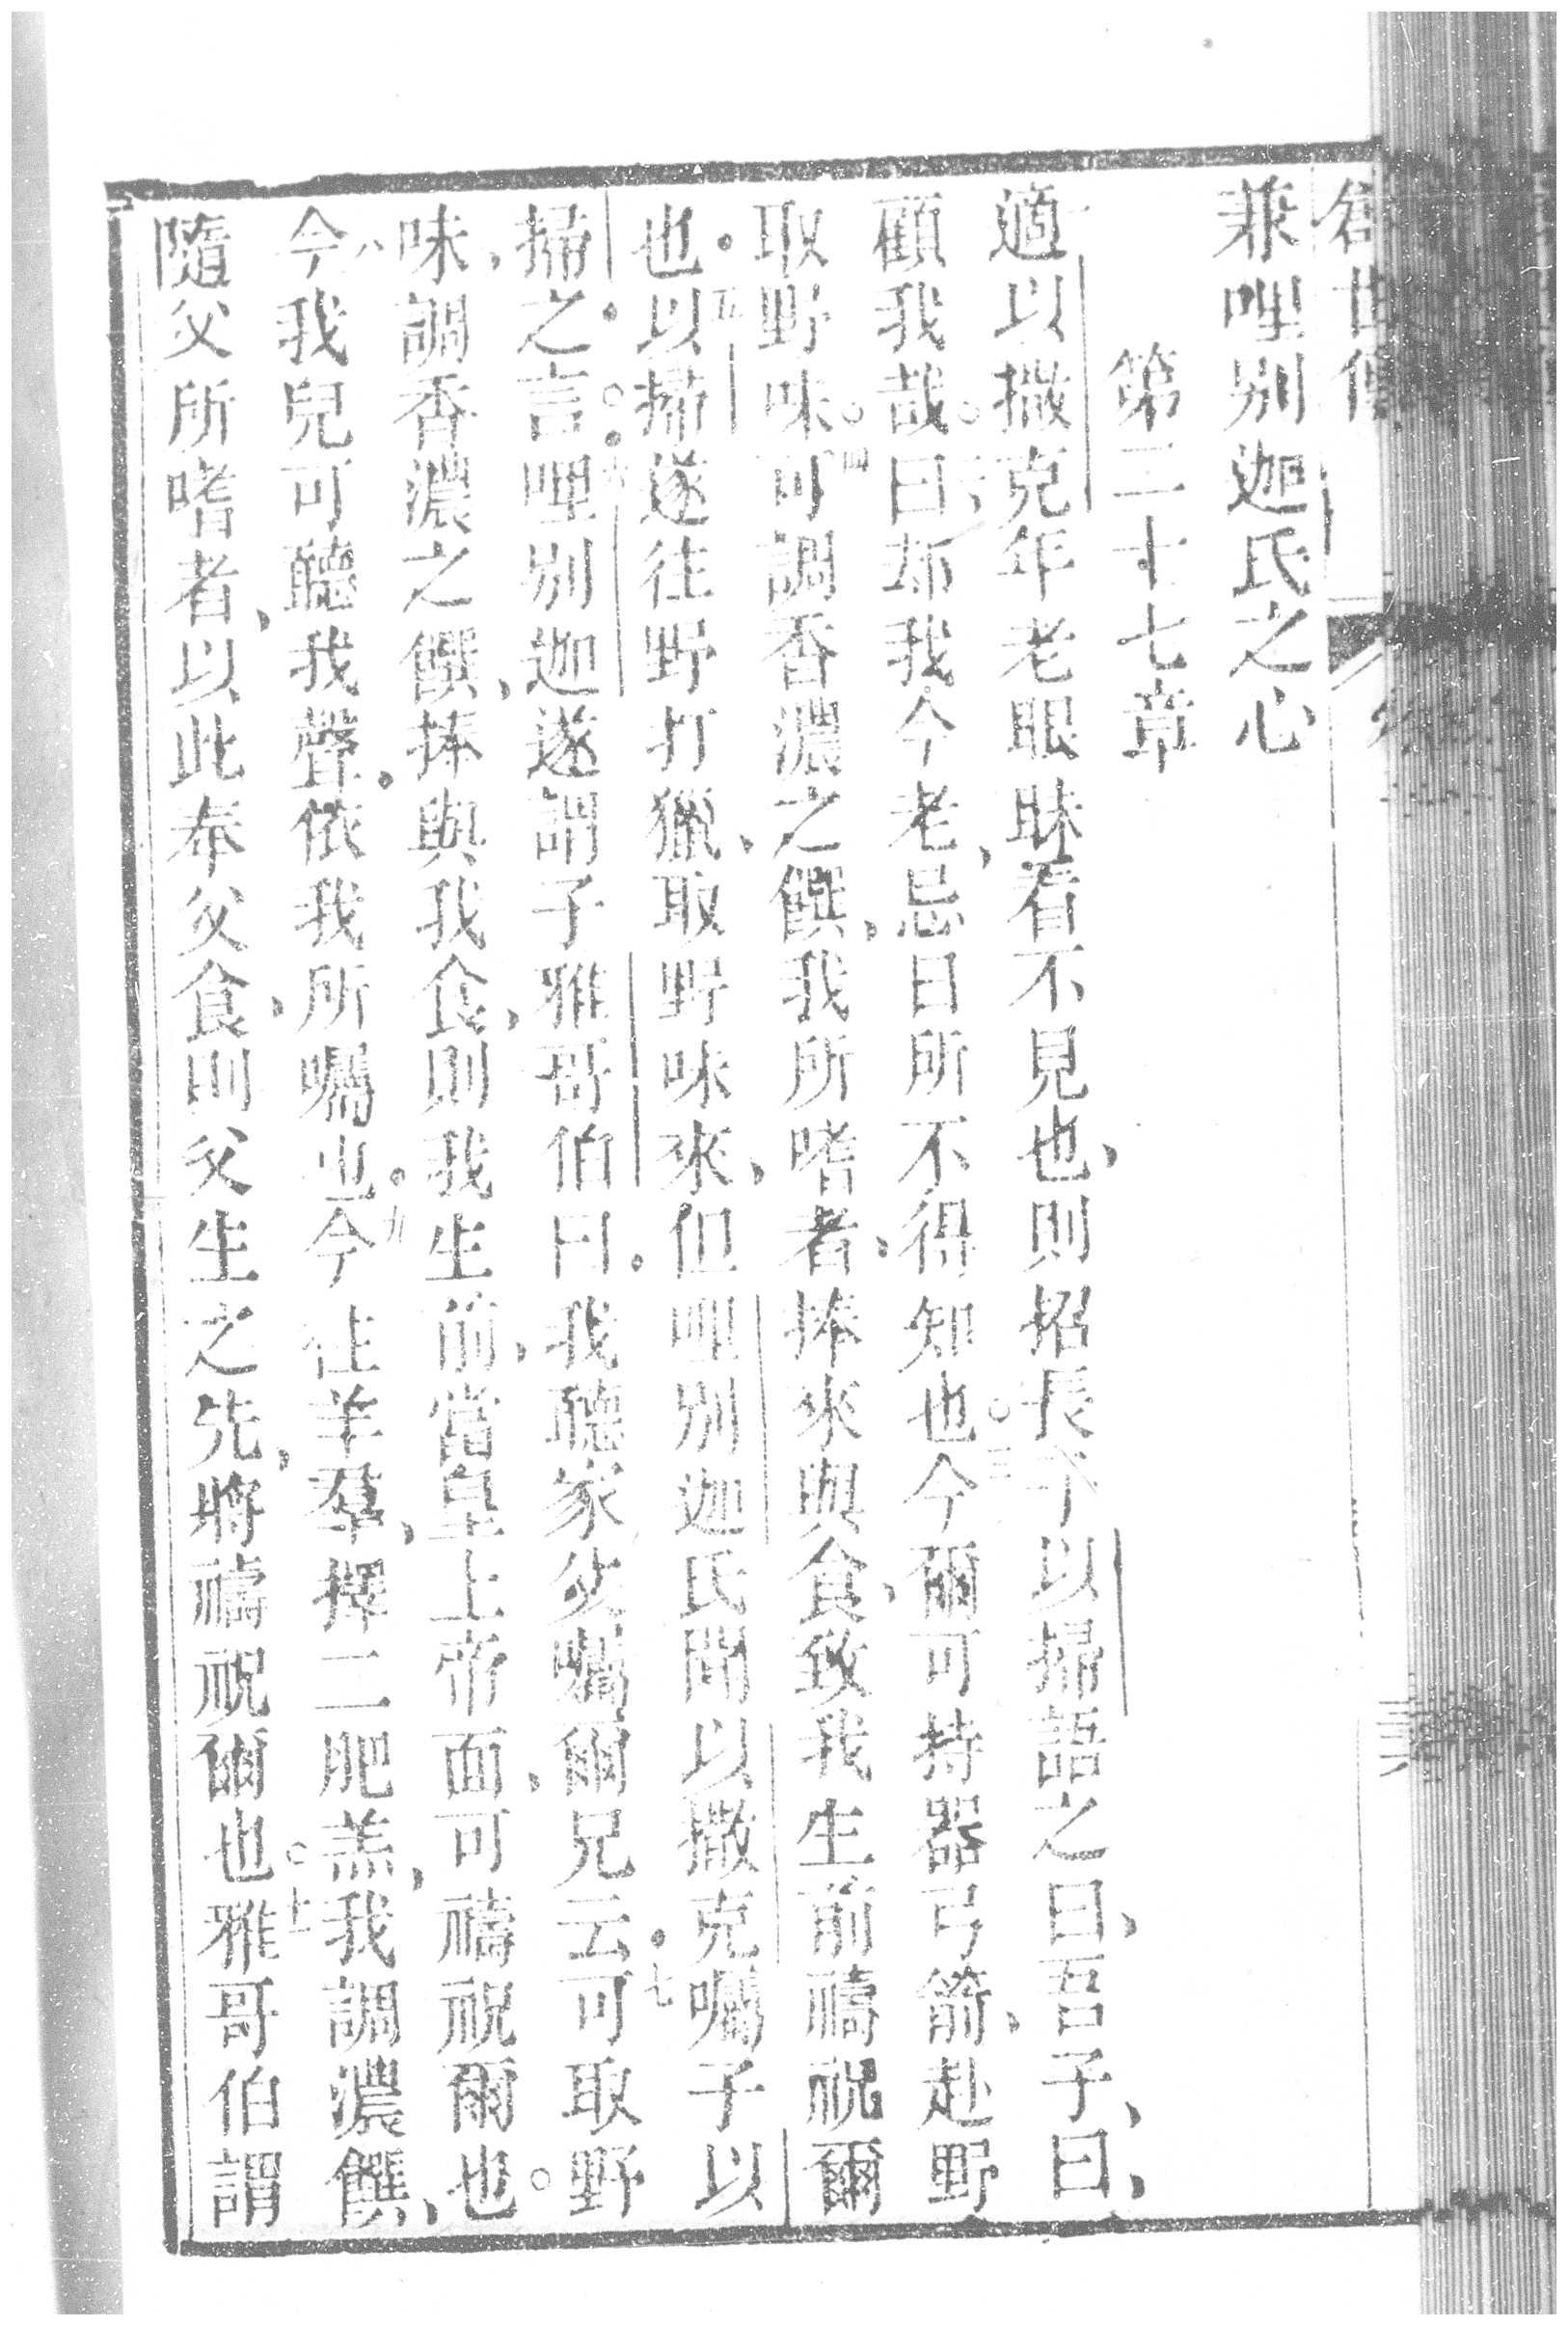 兼哩別迦氏之心
第二十七章
適以撒克年老眼昧看不見也、則招長子以掃語之曰、吾子、曰、
顧我哉。二、曰却我今老、忌日所不得知也。三今爾可持器弓箭、赴野、
取野味。四可調香濃之饌、我所嗜者、捧來與食、致我生前禱祝爾
也。五以掃遂往野打獵、取野味來、但哩別迦氏聞以撒克囑子以
掃之言。六哩別迦遂謂子雅哥伯曰。我聽家父囑爾兄云。七可取野
味、調香濃之饌、捧與我食、則我生前、當皇上帝面、可禱祝爾也。
八今我兒可聽我聲。依我所囑也。九今往羊羣、擇二肥羔、我調濃饌、
隨父所嗜者、以此奉父食、則父生之先、將禱祝爾也。十一雅哥伯謂